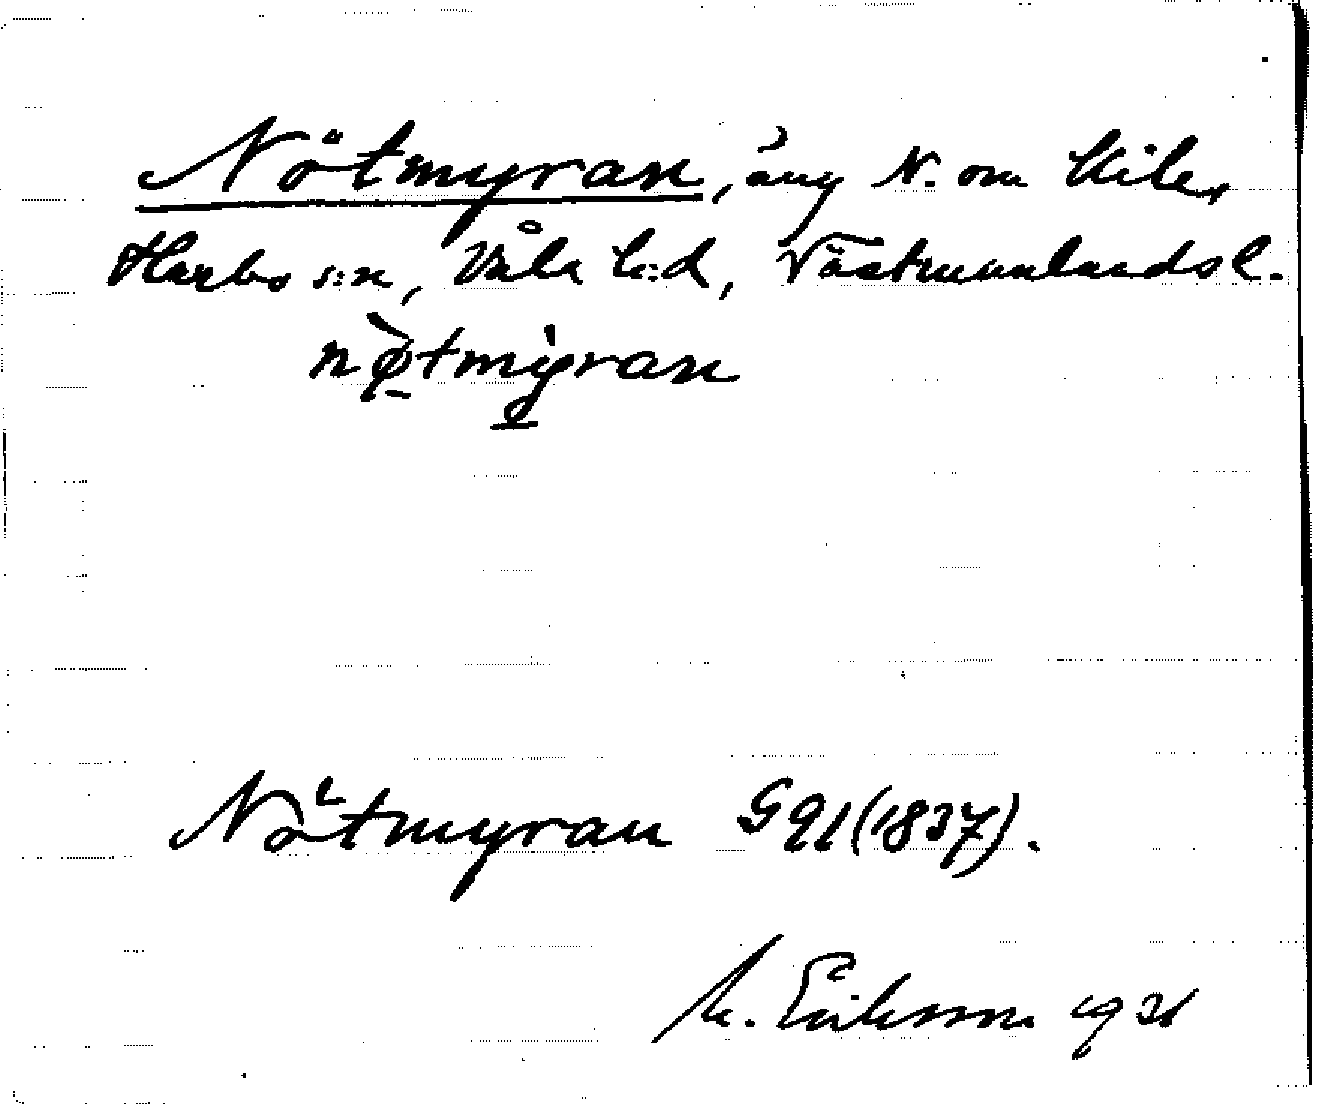 Nötmyran, äng N. om Kile,
Harbo s:n, Våla h:d, Västmanlands l.
nø̀tmyran
Nötmyran G91(1837).
M. Eriksson 1931